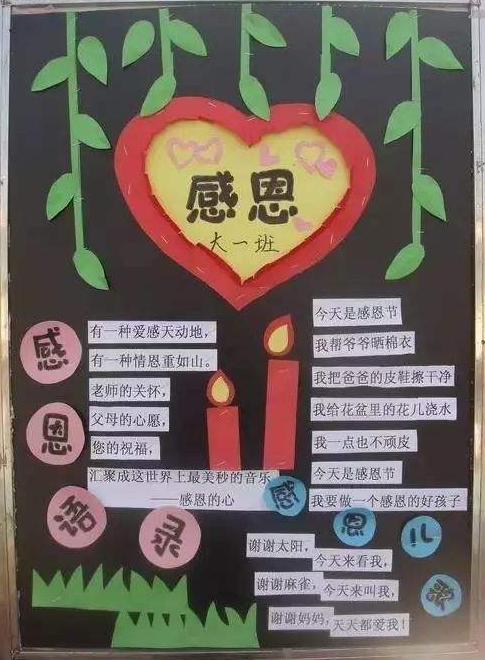 感恩
大一班
感恩语录
有一种爱感天动地，
有一种情恩重如山。
老师的关怀，
父母的心愿，
您的祝福，
汇聚成这世界上最美秒的音乐
——感恩的心
今天是感恩节
我帮爷爷晒棉衣
我把爸爸的皮鞋擦干净
我给花盆里的花儿浇水
我一点也不顽皮
今天是感恩节
我要做一个感恩的好孩子
感恩儿歌
谢谢太阳，
今天来看我，
谢谢麻雀，
今天来叫我，
谢谢妈妈，
天天都爱我！